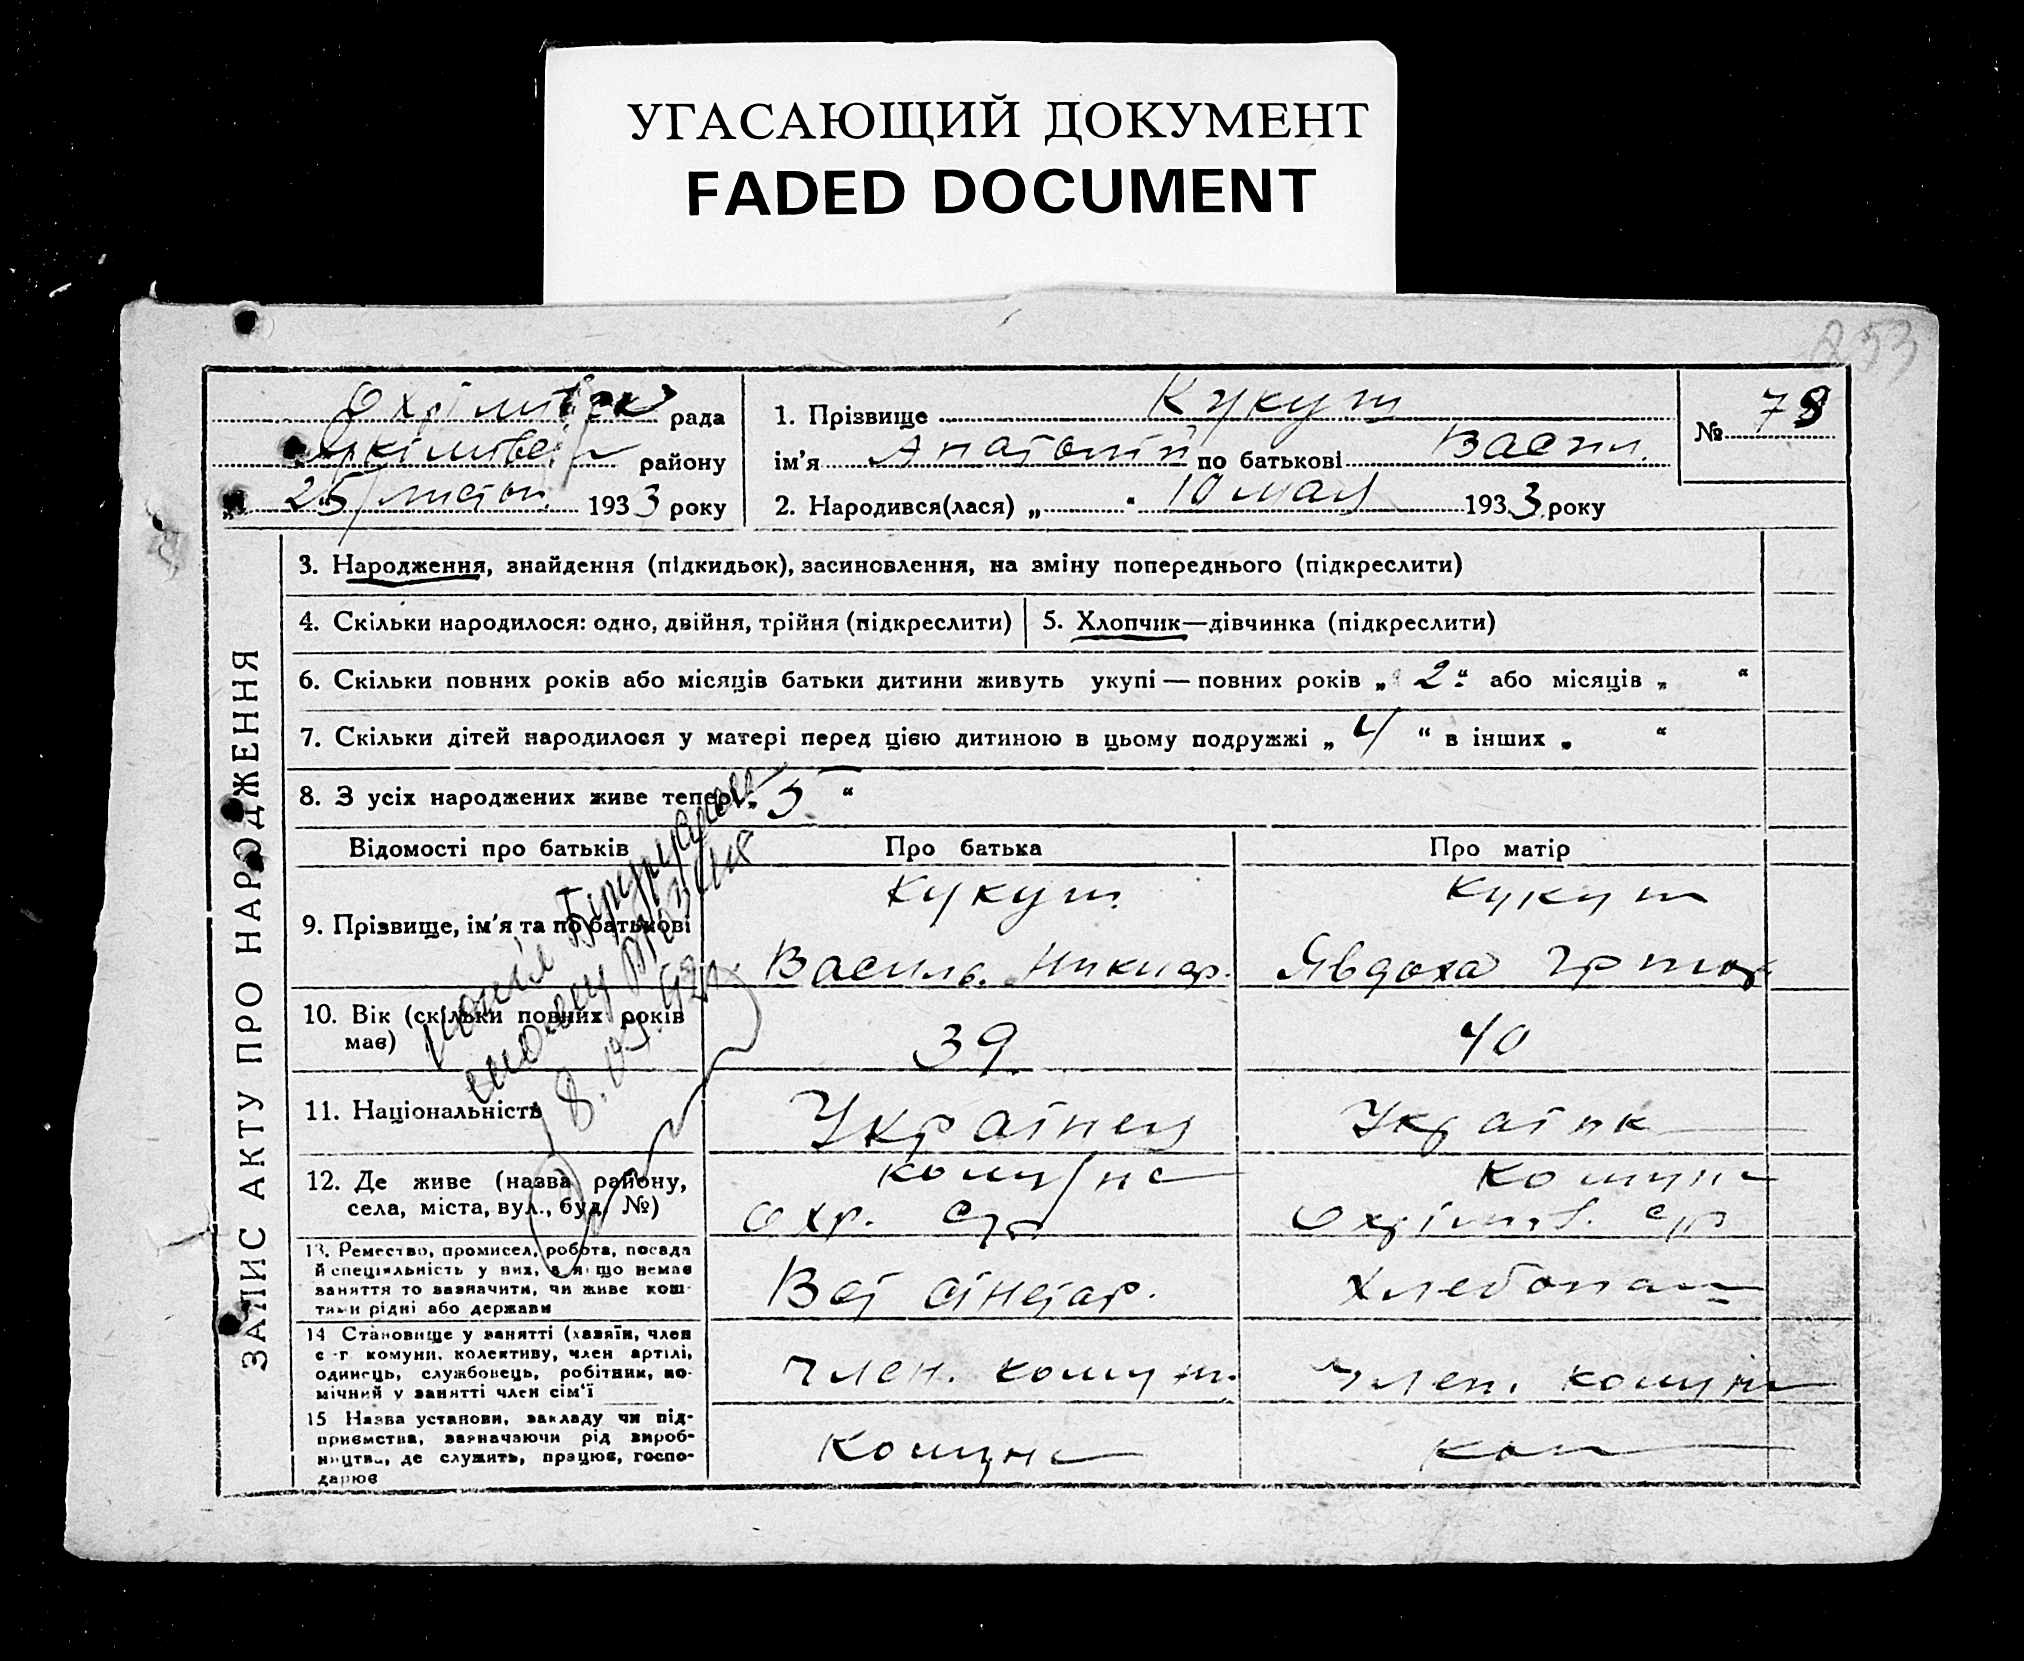 УГАСАЮЩИЙ ДОКУМЕНТ
FADED DOCUMENT
253
рада
району
„ 25 “ листоп. 1933 року
1. Прізвище Кукуш
ім'я Анатолій по батькові Васил.
2. Народився(лася) „ “ 10 мая 1933 року
№ 78
ЗАПИС АКТУ ПРО НАРОДЖЕННЯ
3. Народження, знайдення (підкидьок), засиновлення, на зміну попереднього (підкреслити)
4. Скільки народилося: одно, двійня, трійня (підкреслити)
5. Хлопчик—дівчинка (підкреслити)
6. Скільки повних років або місяців батьки дитини живуть укупі — повних років „ 2 “ або місяців „ “
7. Скільки дітей народилося у матері перед цією дитиною в цьому подружжі „ 4 “ в інших „ “
8. З усіх народжених живе тепер „ 5 “
Відомості про батьків
Про батька
Про матір
9. Прізвище, ім'я та по батькові
Кукуш
Василь
Кукуш
Явдоха
10. Вік (скільки повних років має)
39
40
11. Національність
Українец
Українк
12. Де живе (назва району,
села, міста, вул., буд. №)
комуна
Охр. с/р
комуна
Охрімів. с/р
13. Ремество, промисел, робота, посада
й спеціяльність у них, а якщо немає
заняття то зазначити, чи живе кош-
тами рідні або держави
Вет санетар.
Хлебопаш
14 Становище у занятті (хазяїн, член
с.-г. комуни, колективу, член артілі,
одинець, службовець, робітник, по-
мічний у занятті член сім'ї
член. комун.
член. комуни
15 Назва установи, закладу чи під-
приємства, зазначаючи рід вироб-
ництва, де служить, працює, госпо-
дарює
Комуна
ком